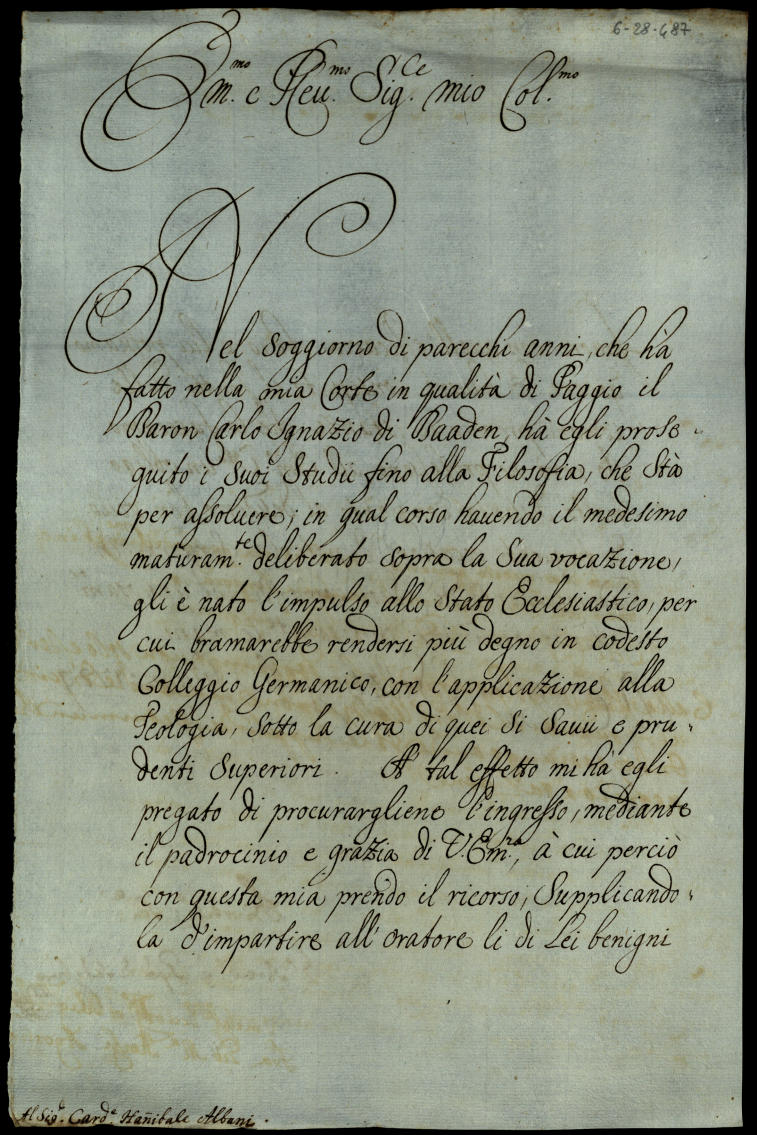 6-28-487
Em.mo e Reu.mo Sig.re mio Col.mo
Nel soggiorno di parecchi anni, che hà
fatto nella mia Corte in qualità di Paggio il
Baron Carlo Ignazio di Baaden, hà egli prose-
guito i suoi Studii fino alla Filosofia, che stà
per assoluere; in qual corso hauendo il medesimo
maturam.te deliberato sopra la Sua vocazione,
gli è nato l'impulso allo Stato Ecclesiastico, per
cui bramarebbe rendersi più degno in codesto
Colleggio Germanico, con l'applicazione alla
Teologia, sotto la cura di quei si Sauii e pru-
denti Superiori. A' tal effetto mi hà egli
pregato di procurargliene l'ingresso, mediante
il padrocinio e grazia di V. Em.za, à cui perciò
con questa mia prendo il ricorso, Supplicando-
la d'impartire all'oratore li di Lei benigni
Al Sig.r Card.le Hañibale Albani.